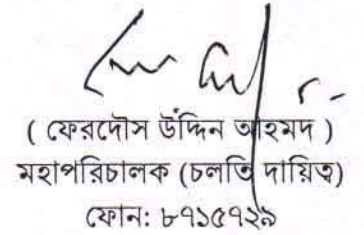 ( ফেরদৌস উদ্দিন আহমদ )
মহাপরিচালক (চলতি দায়িত্ব)
ফোন: ৮৭১৫৭২৯